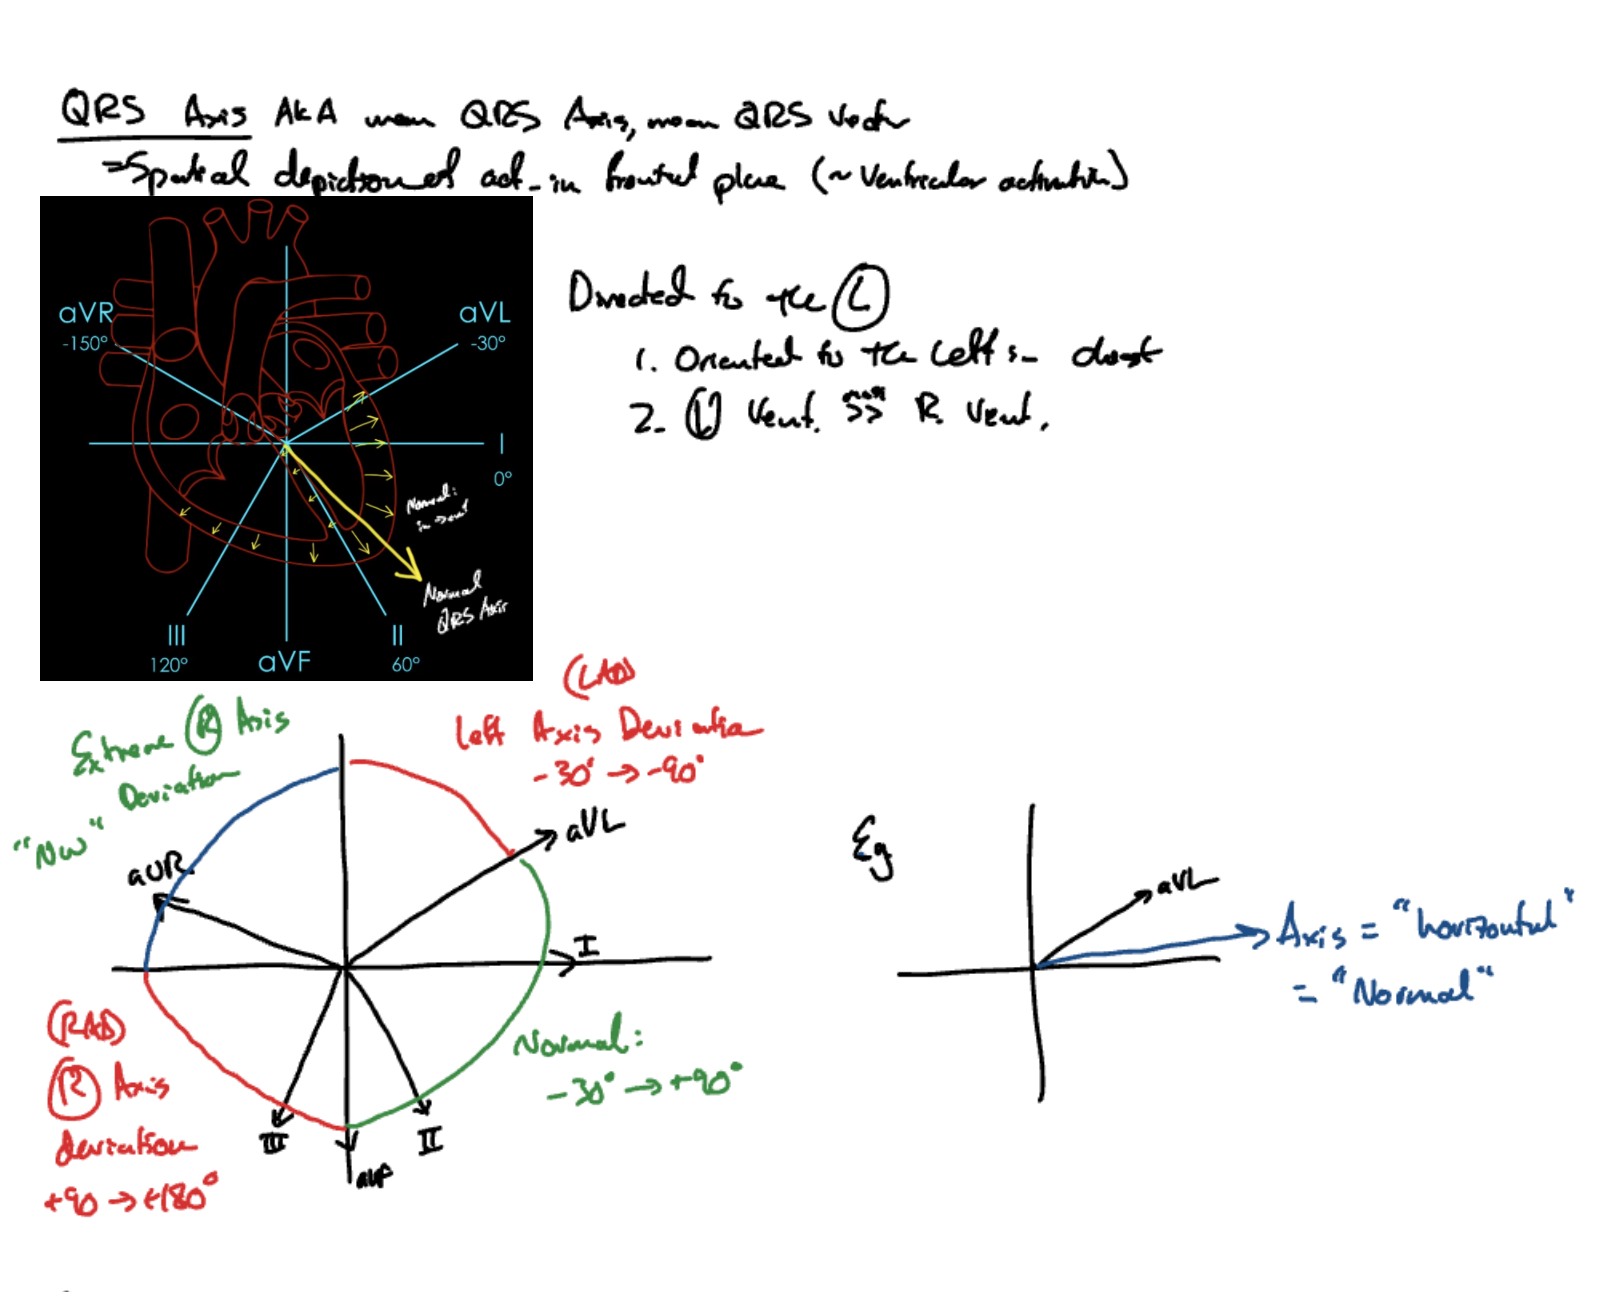 QRS Axis AKA mean QRS Axis, mean QRS Vector
⇒ Spatial depiction of act. in frontal plane (~ Ventricular activation)
aVR
-150°
aVL
-30°
I
0°
Normal:
Normal
QRS Axis
III
120°
aVF
II
60°
Directed to the L
1. Oriented to the left in chest
2. L Vent. >> R. Vent.
Extreme R Axis
Deviation
"NW"
(LAD)
Left Axis Deviation
-30° → -90°
aVR
aVL
I
III
aVF
II
(RAD)
R Axis
deviation
+90 → +180°
Normal:
-30° → +90°
Eg
aVL
Axis = "horizontal"
= "Normal"